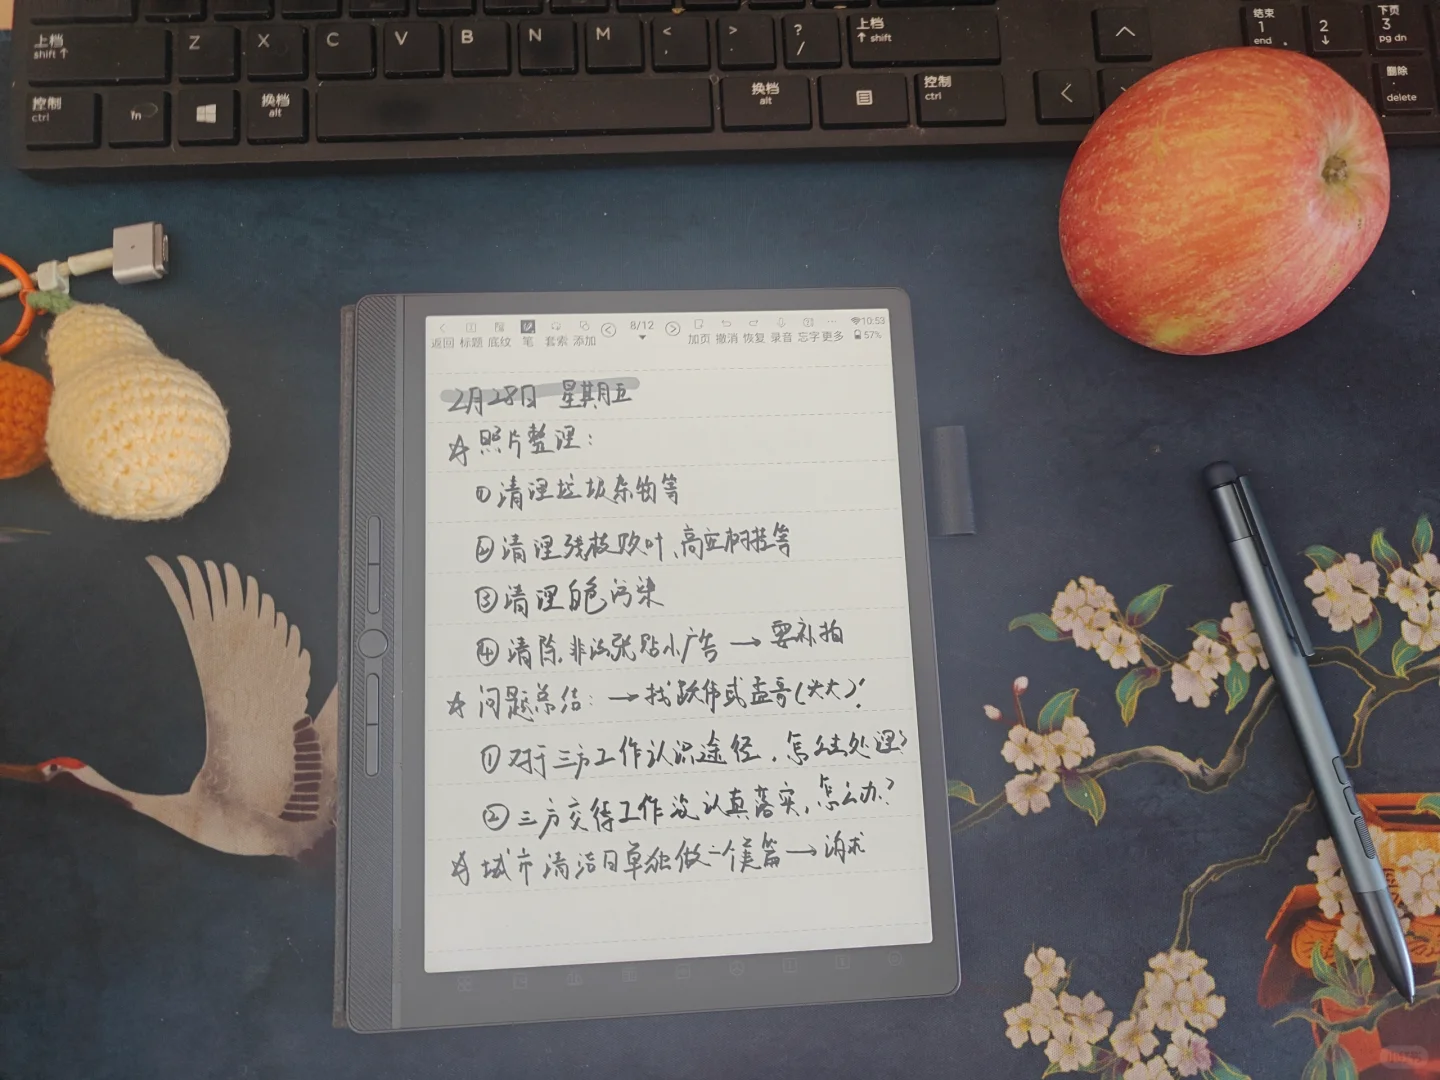 上档 shift ↑ Z X C V B N M < , > . ? / 上档 ↑ shift 结束 1 end 2 ↓ 下页 3 pg dn
控制 ctrl fn 换档 alt 换档 alt 控制 ctrl 删除 . delete
8/12 10:53
返回 标题 底纹 笔 套索 添加 加页 撤消 恢复 录音 忘字 更多 57%
2月28日 星期五
☆照片整理：
①清理垃圾杂物等
②清理残枝败叶、高空树挂等
③清理白色污染
④清除非法张贴小广告 → 要补拍
☆问题总结：→找跃伟或孟哥
①对于三方工作认识途径，怎么去处理？
②三方交待工作没认真落实，怎么办？
☆城市清洁日单独做一个美篇→诉求